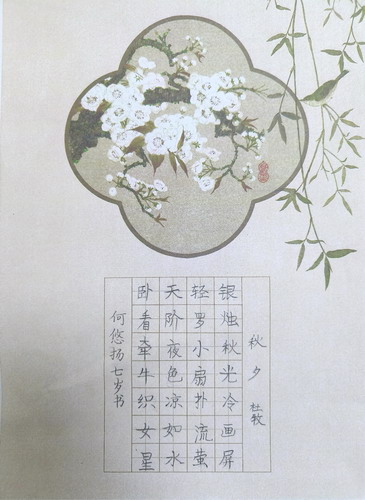 秋夕 杜牧
银烛秋光冷画屏
轻罗小扇扑流萤
天阶夜色凉如水
卧看牵牛织女星
何悠扬七岁书